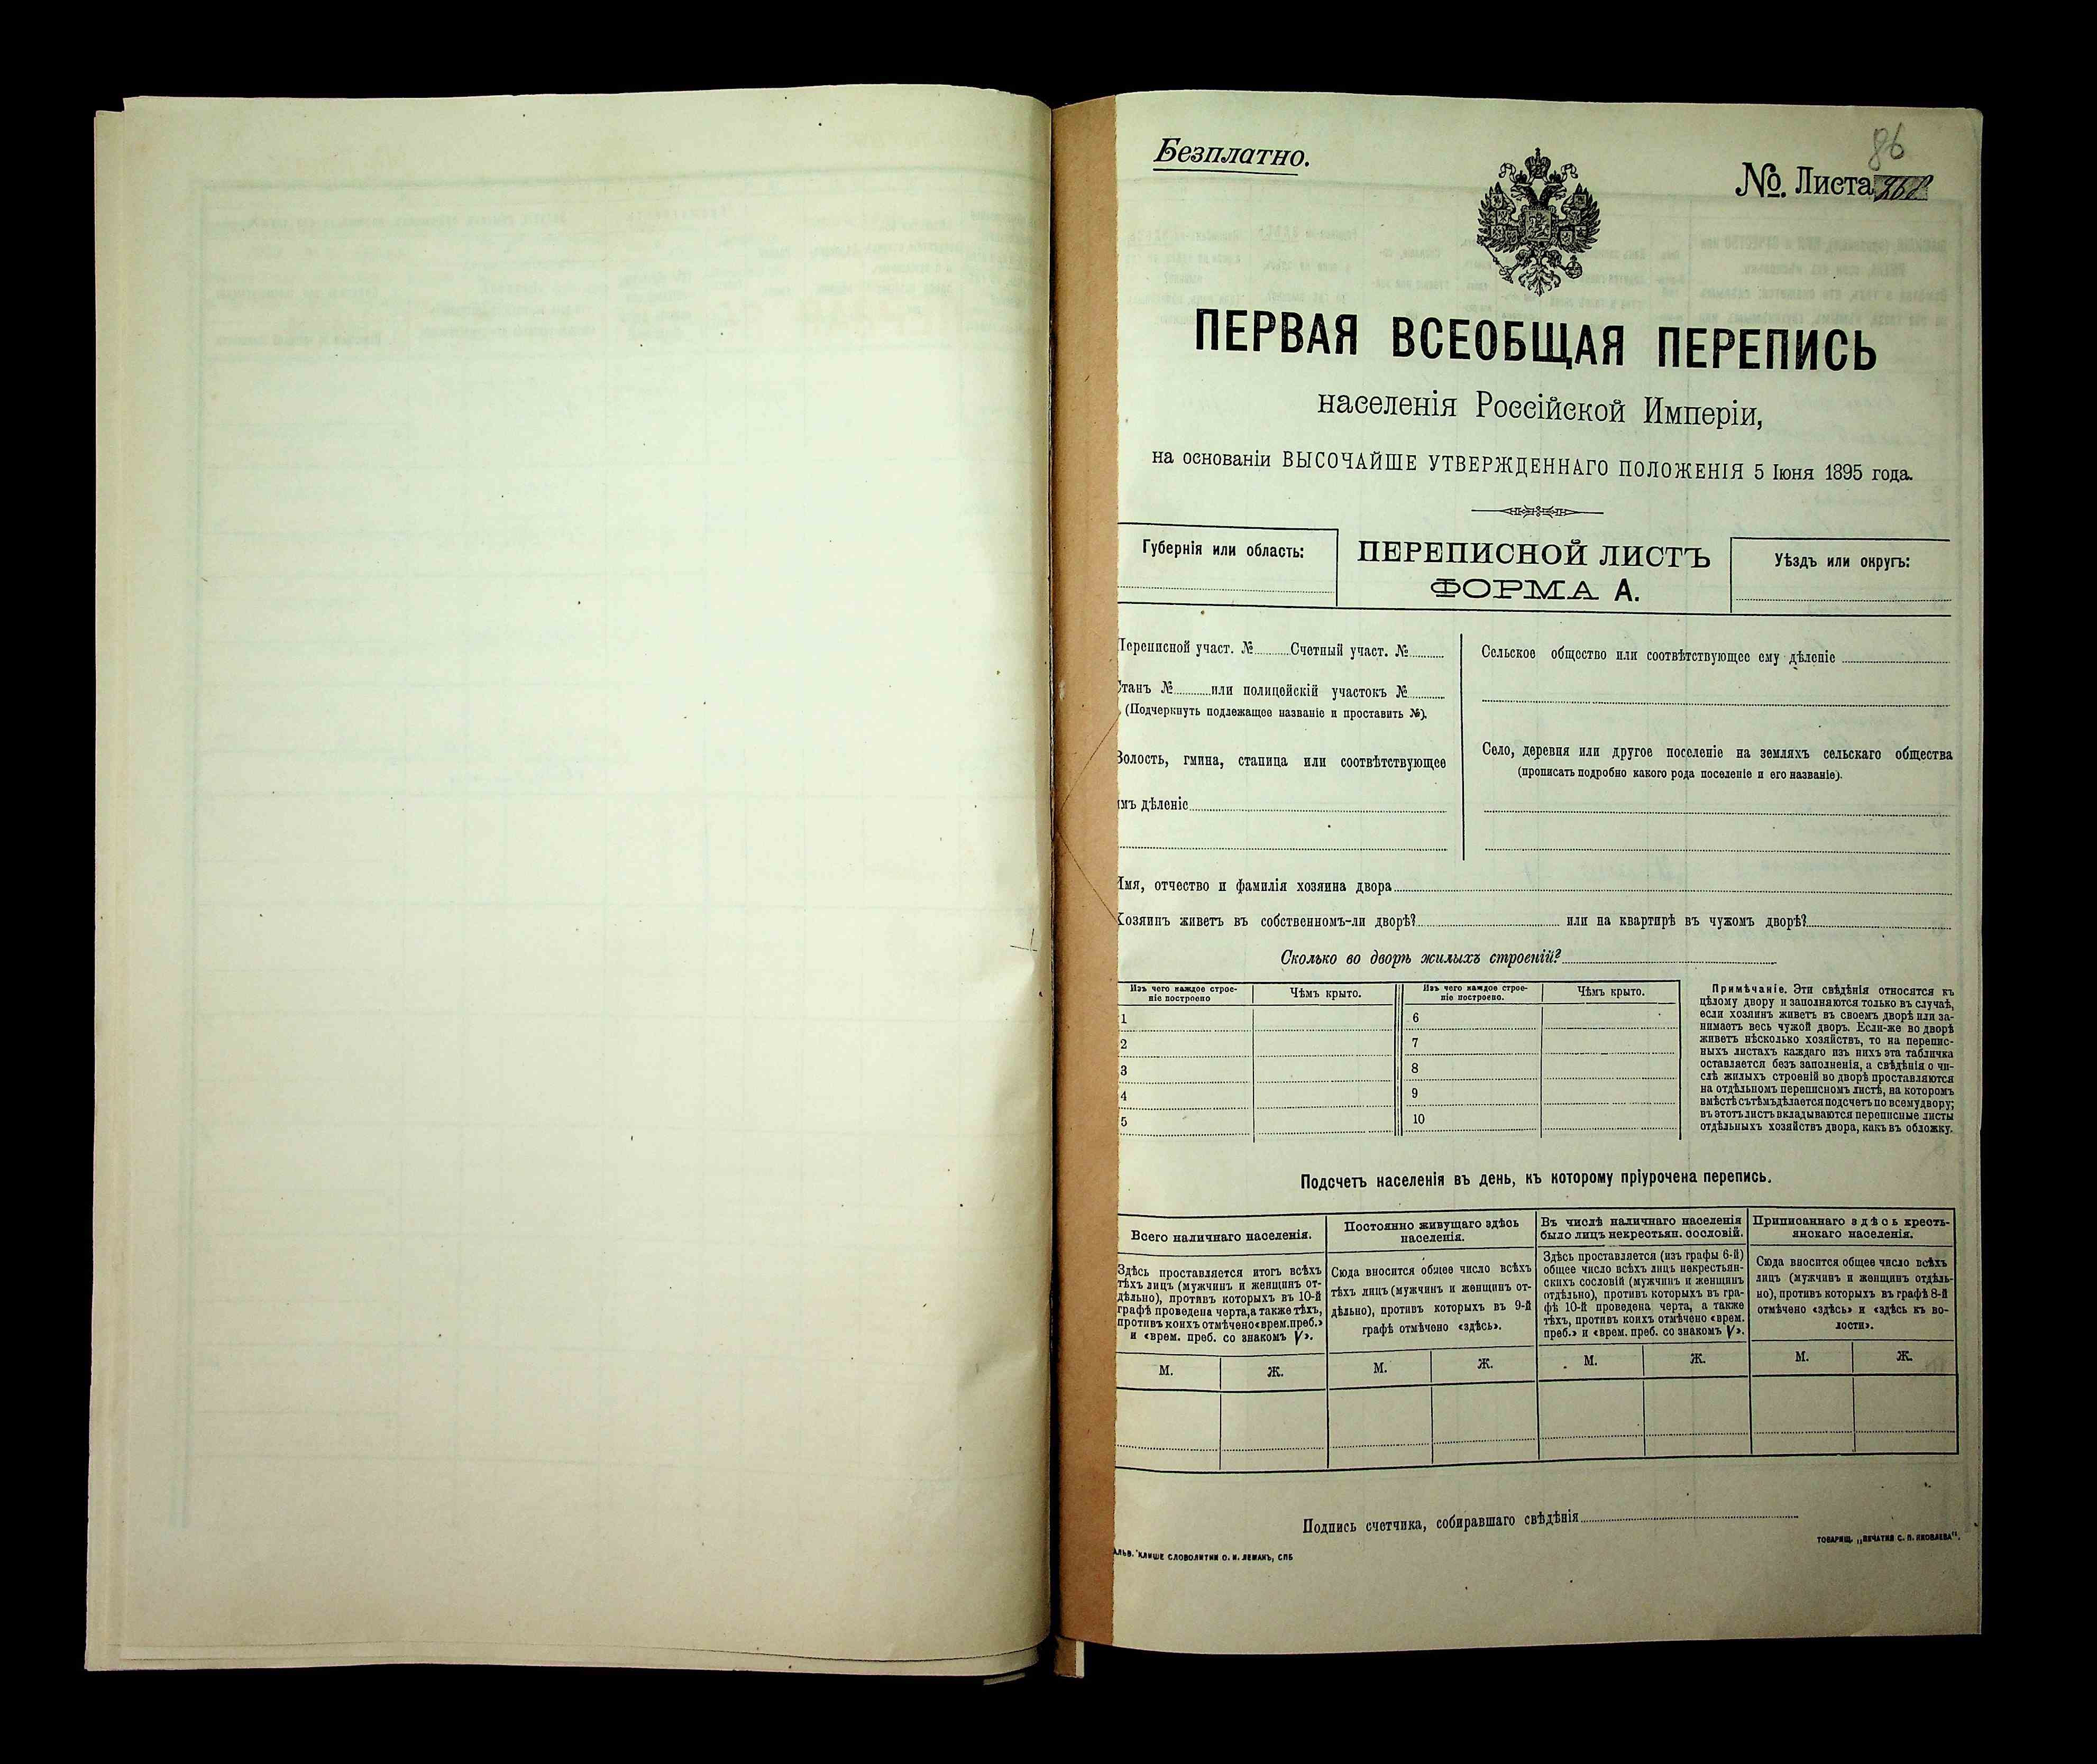 86
Безплатно.
№. Листа
ПЕРВАЯ ВСЕОБЩАЯ ПЕРЕПИСЬ
населенія Россійской Имперіи,
на основаніи ВЫСОЧАЙШЕ УТВЕРЖДЕННАГО ПОЛОЖЕНІЯ 5 Іюня 1895 года.
Губернія или область:
ПЕРЕПИСНОЙ ЛИСТЪ
ФОРМА А.
Уѣздъ или округъ:
Переписной участ. № Счетный участ. №
Станъ № или полицейскій участокъ №
(Подчеркнуть подлежащее названіе и проставить №).
Волость, гмина, станица или соотвѣтствующее
имъ дѣленіе
Сельское общество или соотвѣтствующее ему дѣленіе
Село, деревня или другое поселеніе на земляхъ сельскаго общества
(прописать подробно какого рода поселеніе и его названіе).
Имя, отчество и фамилія хозяина двора
Хозяинъ живетъ въ собственномъ-ли дворѣ? или на квартирѣ въ чужомъ дворѣ?
Сколько во дворѣ жилыхъ строеній?
Изъ чего каждое строе-
ніе построено
Чѣмъ крыто.
Изъ чего каждое строе-
ніе построено.
Чѣмъ крыто.
1
2
3
4
5
6
7
8
9
10
Примѣчаніе. Эти свѣдѣнія относятся къ
цѣлому двору и заполняются только въ случаѣ,
если хозяинъ живетъ въ своемъ дворѣ или за-
нимаетъ весь чужой дворъ. Если-же во дворѣ
живетъ нѣсколько хозяйствъ, то на перепис-
ныхъ листахъ каждаго изъ нихъ эта табличка
оставляется безъ заполненія, а свѣдѣнія о чи-
слѣ жилыхъ строеній во дворѣ проставляются
на отдѣльномъ переписномъ листѣ, на которомъ
вмѣстѣ съ тѣмъ дѣлается подсчетъ по всему двору;
въ этотъ листъ вкладываются переписные листы
отдѣльныхъ хозяйствъ двора, какъ въ обложку.
Подсчетъ населенія въ день, къ которому пріурочена перепись.
Всего наличнаго населенія.
Здѣсь проставляется итогъ всѣхъ
тѣхъ лицъ (мужчинъ и женщинъ от-
дѣльно), противъ которыхъ въ 10-й
графѣ проведена черта, а также тѣхъ,
противъ коихъ отмѣчено «врем. преб.»
и «врем. преб. со знакомъ V».
М. Ж.
Постоянно живущаго здѣсь
населенія.
Сюда вносится общее число всѣхъ
тѣхъ лицъ (мужчинъ и женщинъ от-
дѣльно), противъ которыхъ въ 9-й
графѣ отмѣчено «здѣсь».
М. Ж.
Въ числѣ наличнаго населенія
было лицъ некрестьян. сословій.
Здѣсь проставляется (изъ графы 6-й)
общее число всѣхъ лицъ некрестьян-
скихъ сословій (мужчинъ и женщинъ
отдѣльно), противъ которыхъ въ гра-
фѣ 10-й проведена черта, а также
тѣхъ, противъ коихъ отмѣчено «врем.
преб.» и «врем. преб. со знакомъ V».
М. Ж.
Приписаннаго здѣсь кресть-
янскаго населенія.
Сюда вносится общее число всѣхъ
лицъ (мужчинъ и женщинъ отдѣль-
но), противъ которыхъ въ графѣ 8-й
отмѣчено «здѣсь» и «здѣсь къ во-
лости».
М. Ж.
Подпись счетчика, собиравшаго свѣдѣнія
КЛИШЕ СЛОВОЛИТНИ О. И. ЛЕМАНЪ, СПБ
ТОВАРИЩ. „ПЕЧАТНЯ С. П. ЯКОВЛЕВА".